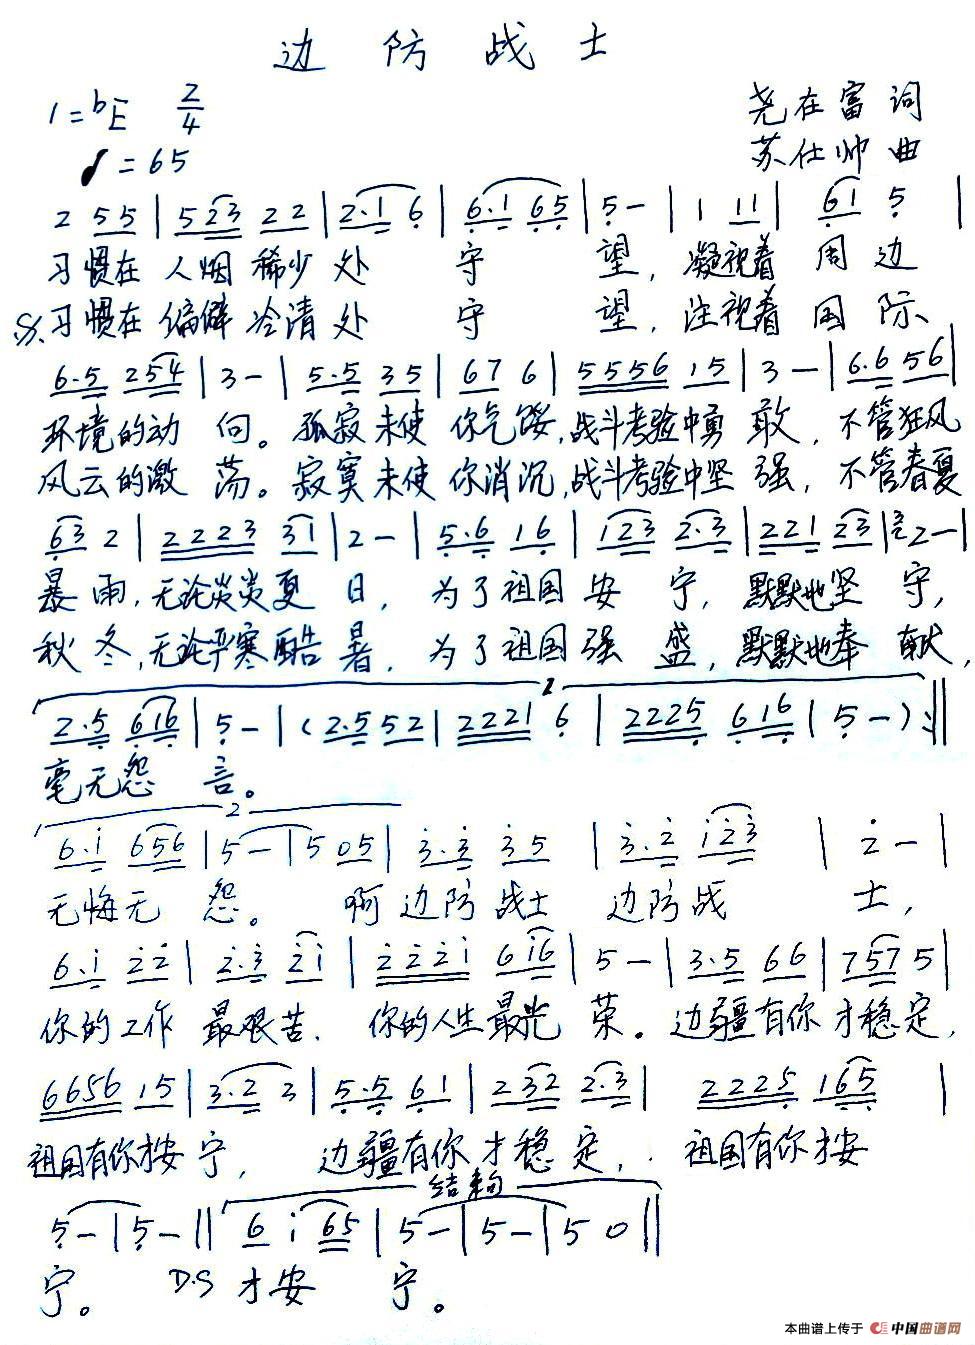 边 防 战 士
1=♭E 2/4
尧在富 词
♩=65
苏仕帅 曲
2 55 | 523 22 | 2·1 6 | 6·1 65 | 5 - | 1 11 | 61 5 |
习惯在 人烟 稀少 处 守 望, 凝视着 周 边
习惯在 偏僻 冷清 处 守 望, 注视着 国 际
6·5 254 | 3 - | 5·5 35 | 67 6 | 5556 15 | 3 - | 6·6 56 |
环境的动 向。 孤寂未使 你气馁, 战斗考验中勇 敢, 不管狂风
风云的激 荡。 寂寞未使 你消沉, 战斗考验中坚 强, 不管春夏
63 2 | 2223 31 | 2 - | 5·6 16 | 123 2·3 | 221 23 | 32 - |
暴 雨, 无论炎炎夏 日, 为了祖国 安 宁, 默默地坚 守,
秋 冬, 无论严寒酷 暑, 为了祖国 强 盛, 默默地奉 献,
1
2·5 616 | 5 - | (2·5 52 | 2221 6 | 2225 616 | 5 -) :||
毫无怨 言。
2
6·i 656 | 5 - | 5 05 | 3·3 35 | 3·2 i23 | 2 - |
无悔无 怨。 啊 边防 战士 边防战 士,
6·i 22 | 2·3 2i | 222i 6i6 | 5 - | 3·5 66 | 757 5 |
你的工作 最艰苦, 你的人生最光 荣。 边疆有你才稳定,
6656 15 | 3·2 2 | 5·5 61 | 232 2·3 | 2225 165 |
祖国有你才安 宁, 边疆有你才 稳 定, 祖国有你才安
结束句
5 - | 5 - || 6 i 65 | 5 - | 5 - | 5 0 ||
宁。 D.S 才安 宁。
本曲谱上传于 中国曲谱网